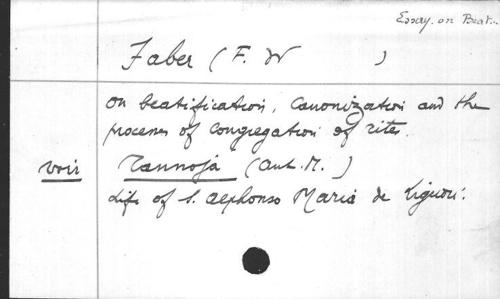 Essay on Beat..
Faber (F. W )
on beatification, Canonization and the
process of congregation of rites.
voir Tannoja (Ant. M. )
Life of S. Alphonso Maria de Liguori.